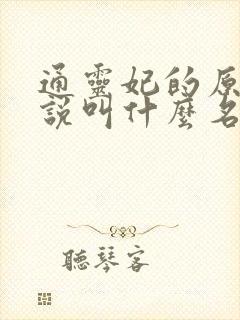 通靈妃的原
說叫什麼名
聽琴客